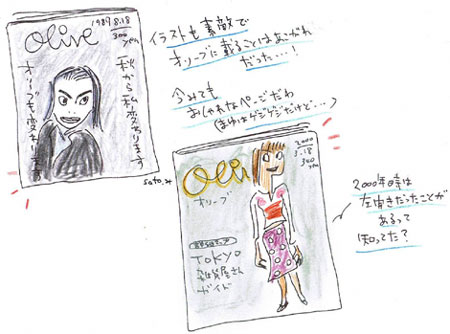 1989.8.18
300
yen
Olive
秋から私変わります
オリーブも変わります
イラストも素敵で
オリーブに載ることはあこがれ
だった…!
今みても
おしゃれなページだわ
(まゆはゲジゲジだけど…)
2000
3.18
340
yen
Olive
オリーブ
TOKYO
雑貨屋さん
ガイド
2000年時は
左開きだったことが
あるって
知ってた?